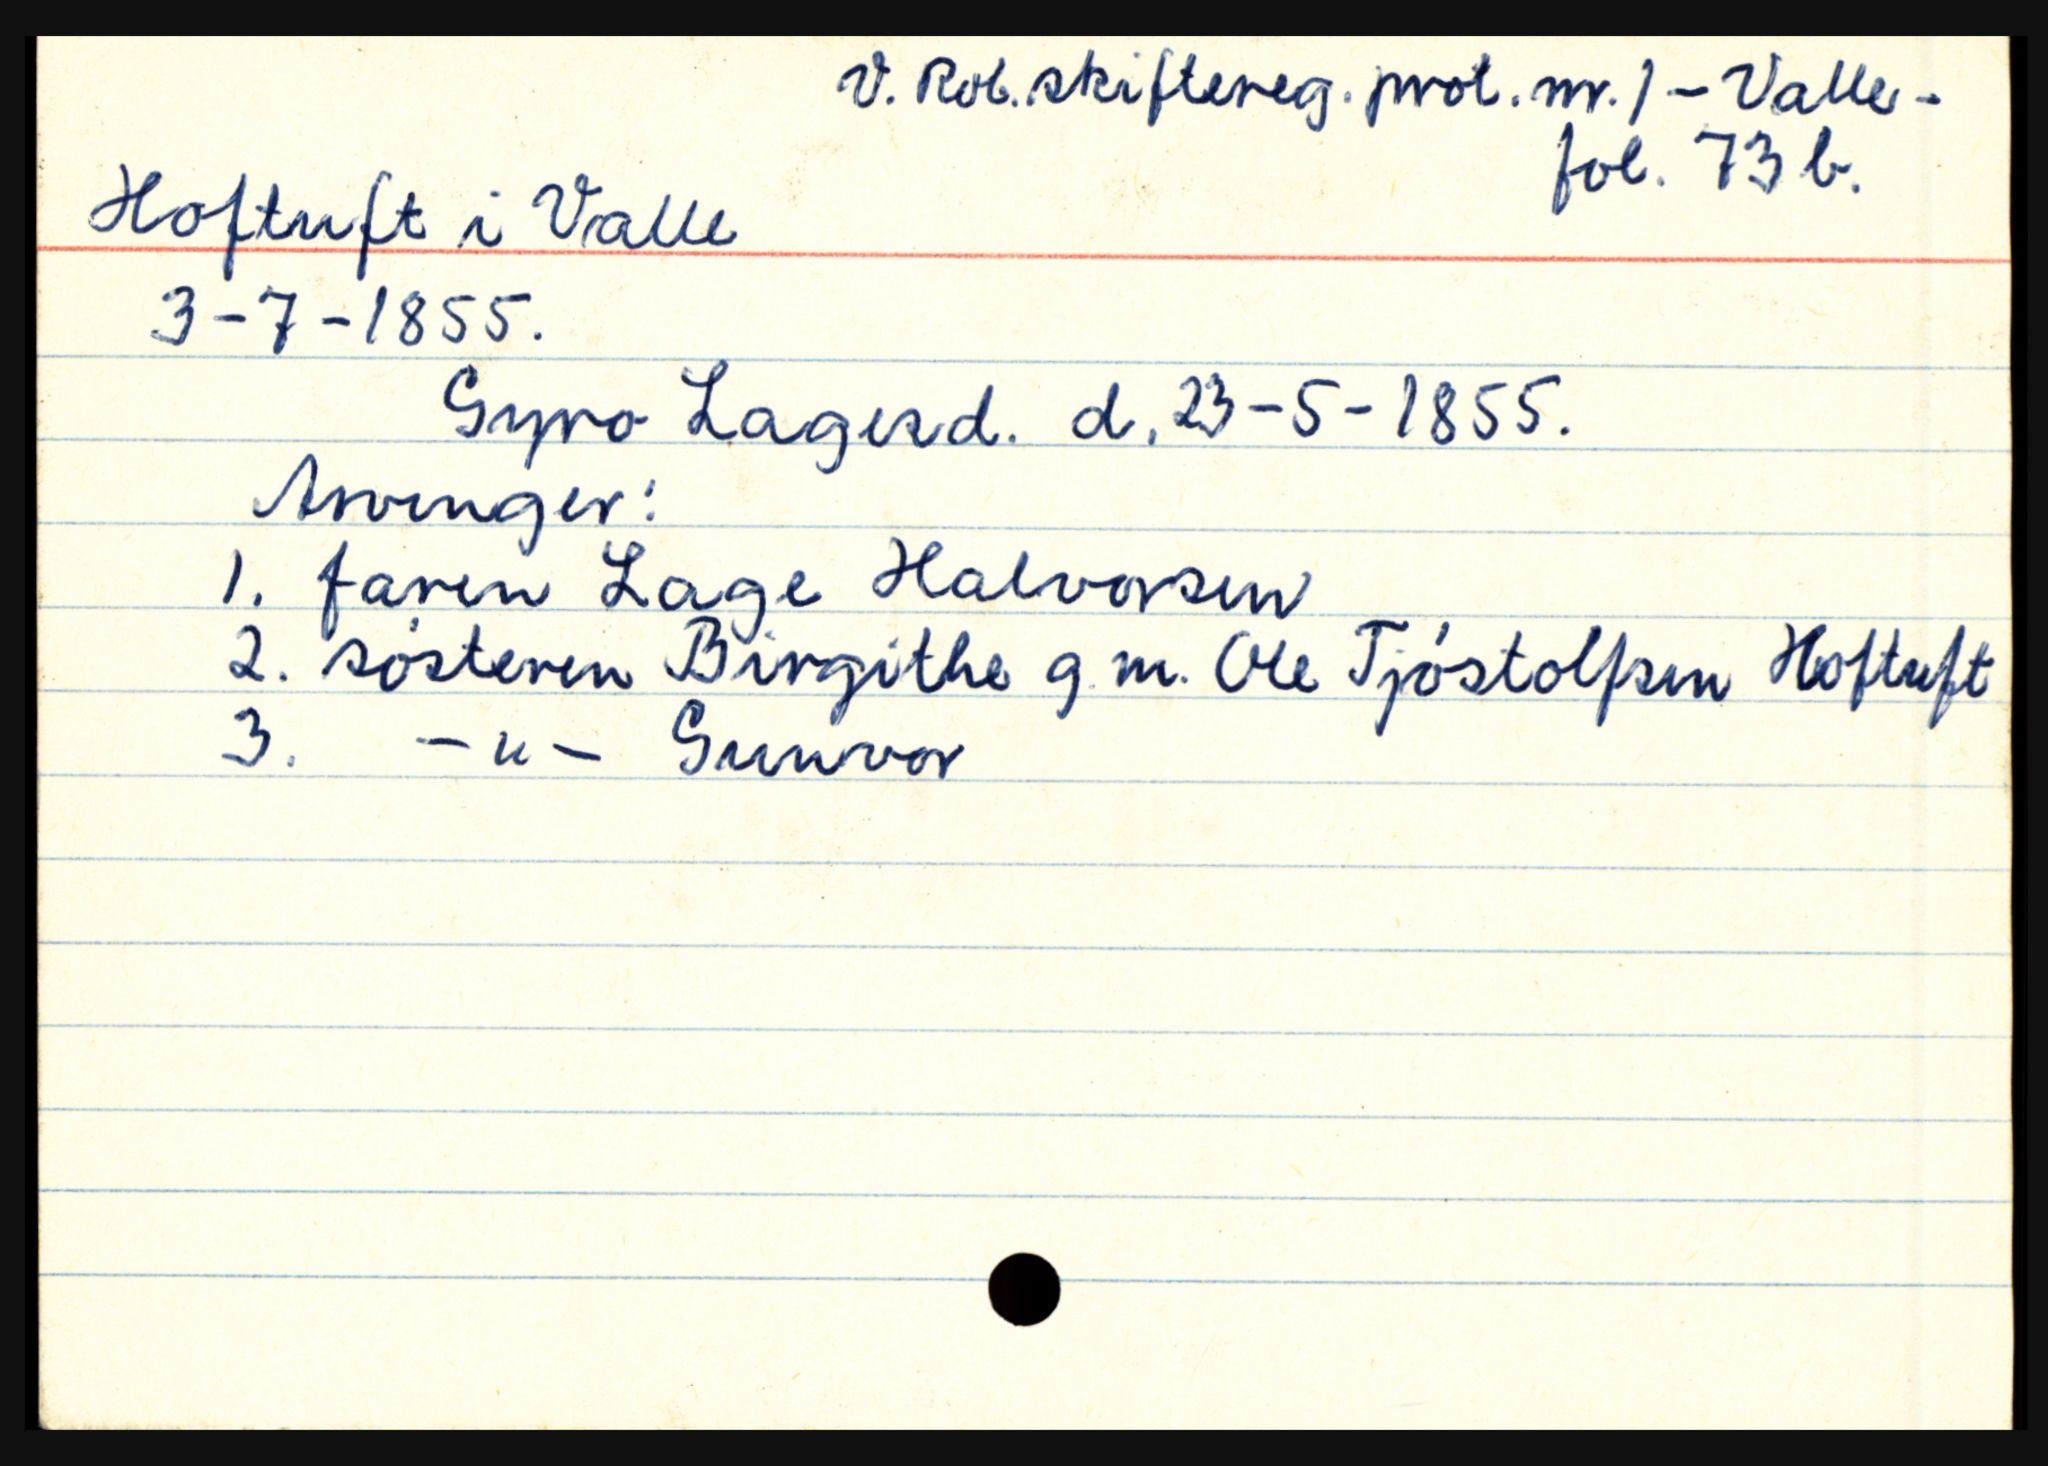 V. Rob. skiftereg. prot. nr. 1 - Valle -
fol. 73 b.
Hoftuft i Valle
3-7-1855.
Gyro Lagesd. d. 23-5-1855.
Arvinger:
1. faren Lage Halvorsen
2. sósteren Birgithe g. m. Ole Tjóstolfsen Hoftuft
3. -"- Gunvor